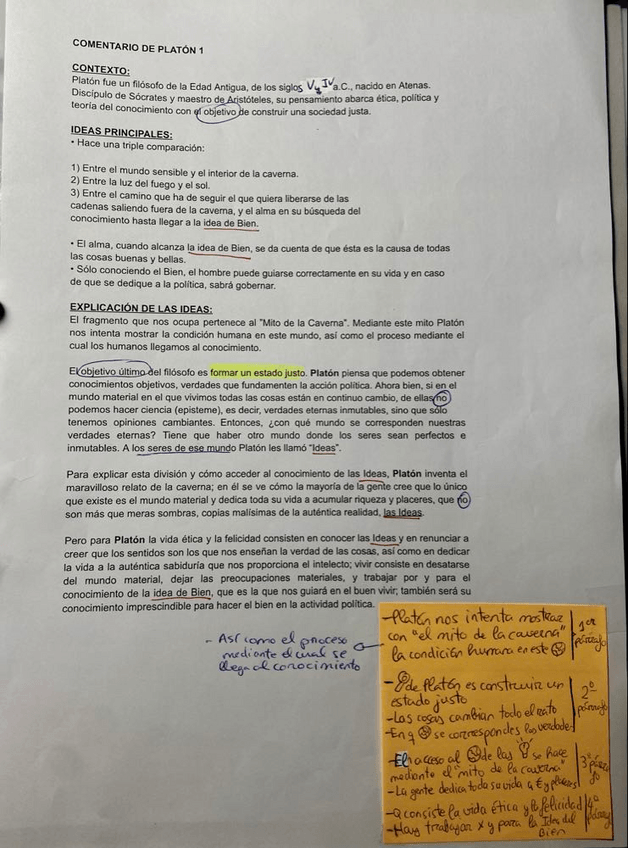 COMENTARIO DE PLATÓN 1
CONTEXTO:
Platón fue un filósofo de la Edad Antigua, de los siglos V y IV a.C., nacido en Atenas.
Discípulo de Sócrates y maestro de Aristóteles, su pensamiento abarca ética, política y
teoría del conocimiento con el objetivo de construir una sociedad justa.
IDEAS PRINCIPALES:
• Hace una triple comparación:
1) Entre el mundo sensible y el interior de la caverna.
2) Entre la luz del fuego y el sol.
3) Entre el camino que ha de seguir el que quiera liberarse de las
cadenas saliendo fuera de la caverna, y el alma en su búsqueda del
conocimiento hasta llegar a la idea de Bien.
• El alma, cuando alcanza la idea de Bien, se da cuenta de que ésta es la causa de todas
las cosas buenas y bellas.
• Sólo conociendo el Bien, el hombre puede guiarse correctamente en su vida y en caso
de que se dedique a la política, sabrá gobernar.
EXPLICACIÓN DE LAS IDEAS:
El fragmento que nos ocupa pertenece al "Mito de la Caverna". Mediante este mito Platón
nos intenta mostrar la condición humana en este mundo, así como el proceso mediante el
cual los humanos llegamos al conocimiento.
El objetivo último del filósofo es formar un estado justo. Platón piensa que podemos obtener
conocimientos objetivos, verdades que fundamenten la acción política. Ahora bien, si en el
mundo material en el que vivimos todas las cosas están en continuo cambio, de ellas no
podemos hacer ciencia (episteme), es decir, verdades eternas inmutables, sino que sólo
tenemos opiniones cambiantes. Entonces, ¿con qué mundo se corresponden nuestras
verdades eternas? Tiene que haber otro mundo donde los seres sean perfectos e
inmutables. A los seres de ese mundo Platón les llamó "Ideas".
Para explicar esta división y cómo acceder al conocimiento de las Ideas, Platón inventa el
maravilloso relato de la caverna; en él se ve cómo la mayoría de la gente cree que lo único
que existe es el mundo material y dedica toda su vida a acumular riqueza y placeres, que no
son más que meras sombras, copias malísimas de la auténtica realidad, las Ideas.
Pero para Platón la vida ética y la felicidad consisten en conocer las Ideas y en renunciar a
creer que los sentidos son los que nos enseñan la verdad de las cosas, así como en dedicar
la vida a la auténtica sabiduría que nos proporciona el intelecto; vivir consiste en desatarse
del mundo material, dejar las preocupaciones materiales, y trabajar por y para el
conocimiento de la idea de Bien, que es la que nos guiará en el buen vivir; también será su
conocimiento imprescindible para hacer el bien en la actividad política.
- Así como el proceso
mediante el cual se
llega al conocimiento
- Platón nos intenta mostrar
con "el mito de la caverna"
la condición humana en este
1er
párrafo
- de Platón es construir un
estado justo
- Las cosas cambian todo el rato
- En q se corresponden las verdades
2º
párrafo
- El acceso al de las se hace
mediante el "mito de la caverna"
- La gente dedica toda su vida a € y placeres
3er párra
fo
- Q consiste la vida ética y la felicidad
- Hay trabajar x y para la Idea del
Bien
4º